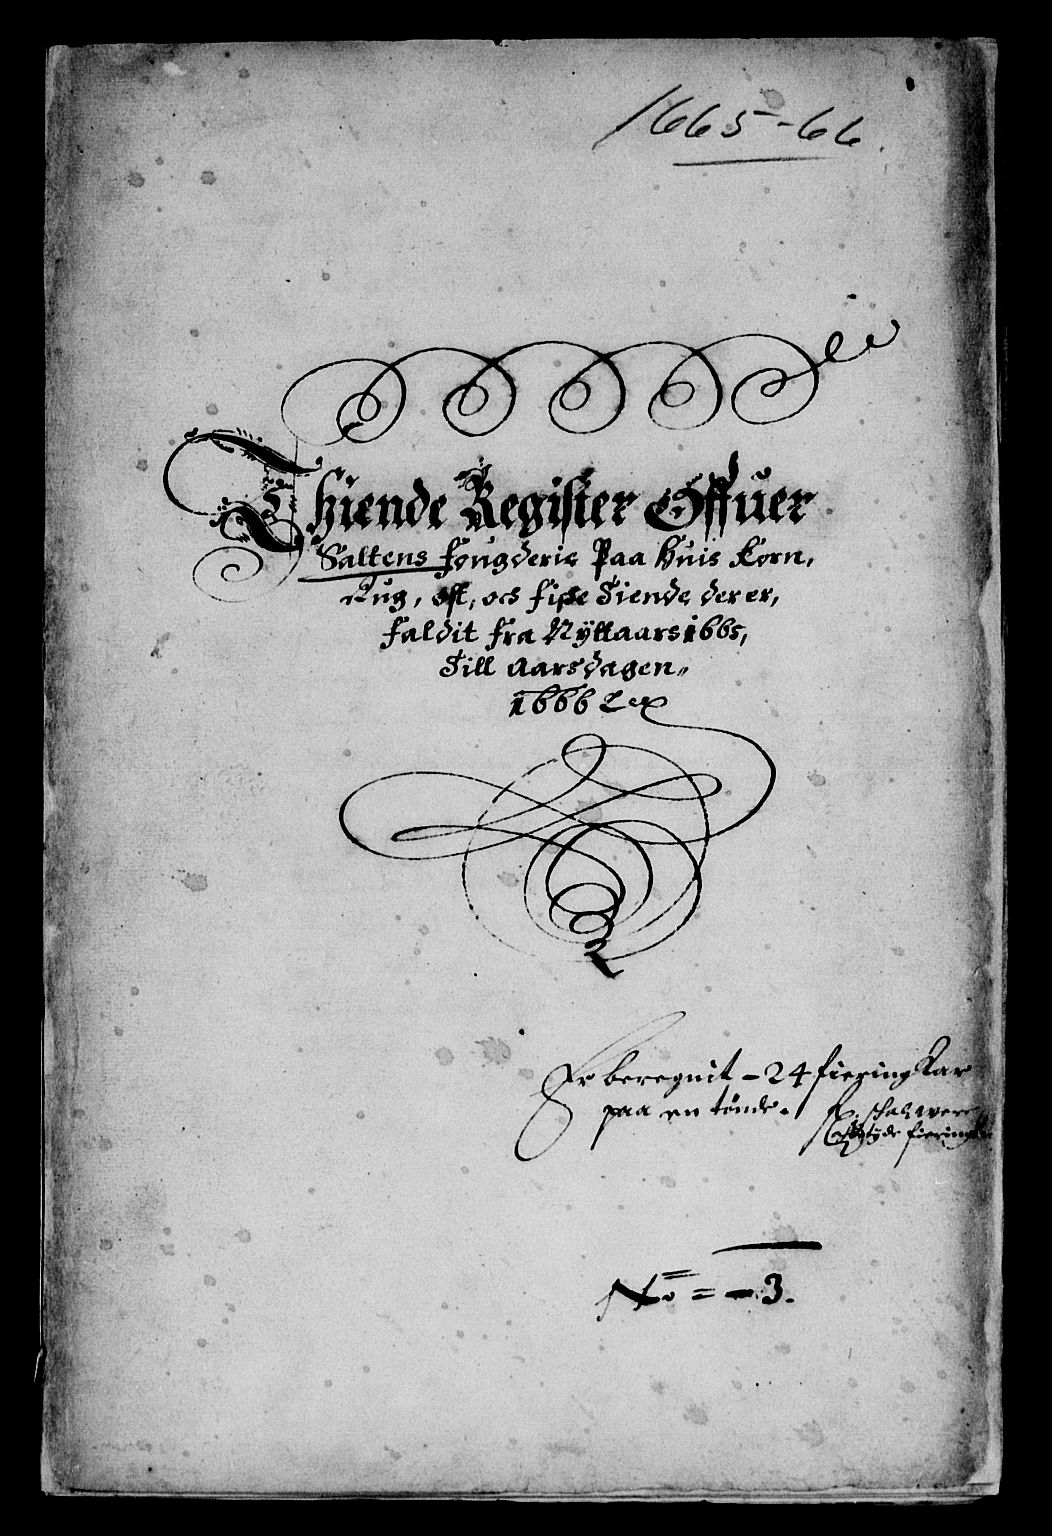 1665-66.
Thiende Register Offuer
Saltens fougderie Paa huis Korn,
Rug, Ost, och fiske Tiende der er,
faldit fra Nyttaars 1665,
Till Aarsdagen
1666
Er beregnit - 24 fiering Kar
paa en tønde. schal were
fiering
No = - 3.